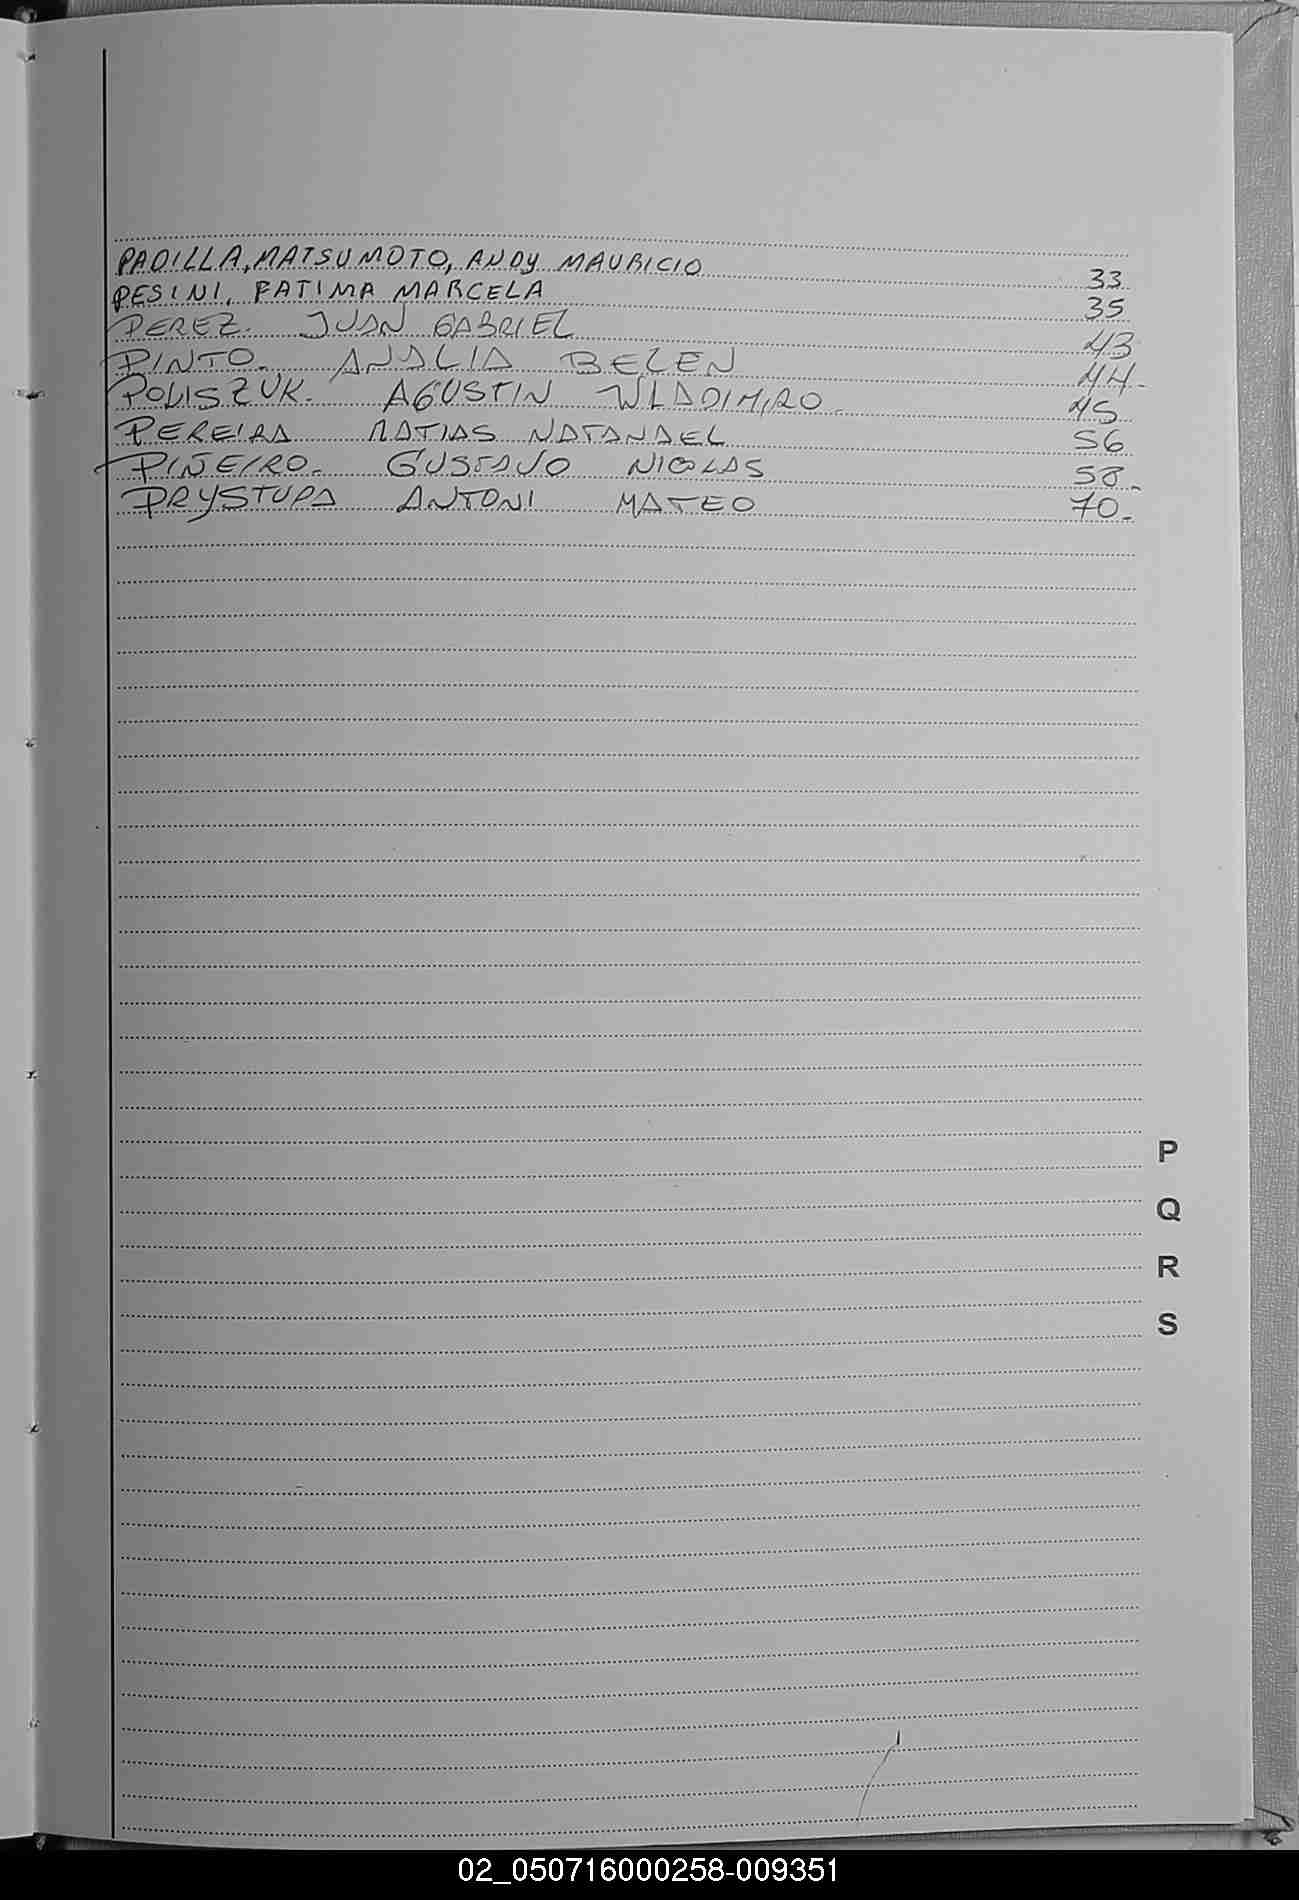 PADILLA, MATSUMOTO, ANDY MAURICIO 33
PESINI, FATIMA MARCELA 35
PEREZ. JUAN GABRIEL 43
PINTO. ANALIA BELEN 44.
POLISZUK. AGUSTIN WLADIMIRO. 45
PEREIRA MATIAS NATANAEL 56
PIÑEIRO. GUSTAVO NICOLAS 58.
PRYSTUPA ANTONI MATEO 70.
P
Q
R
S
02_050716000258-009351